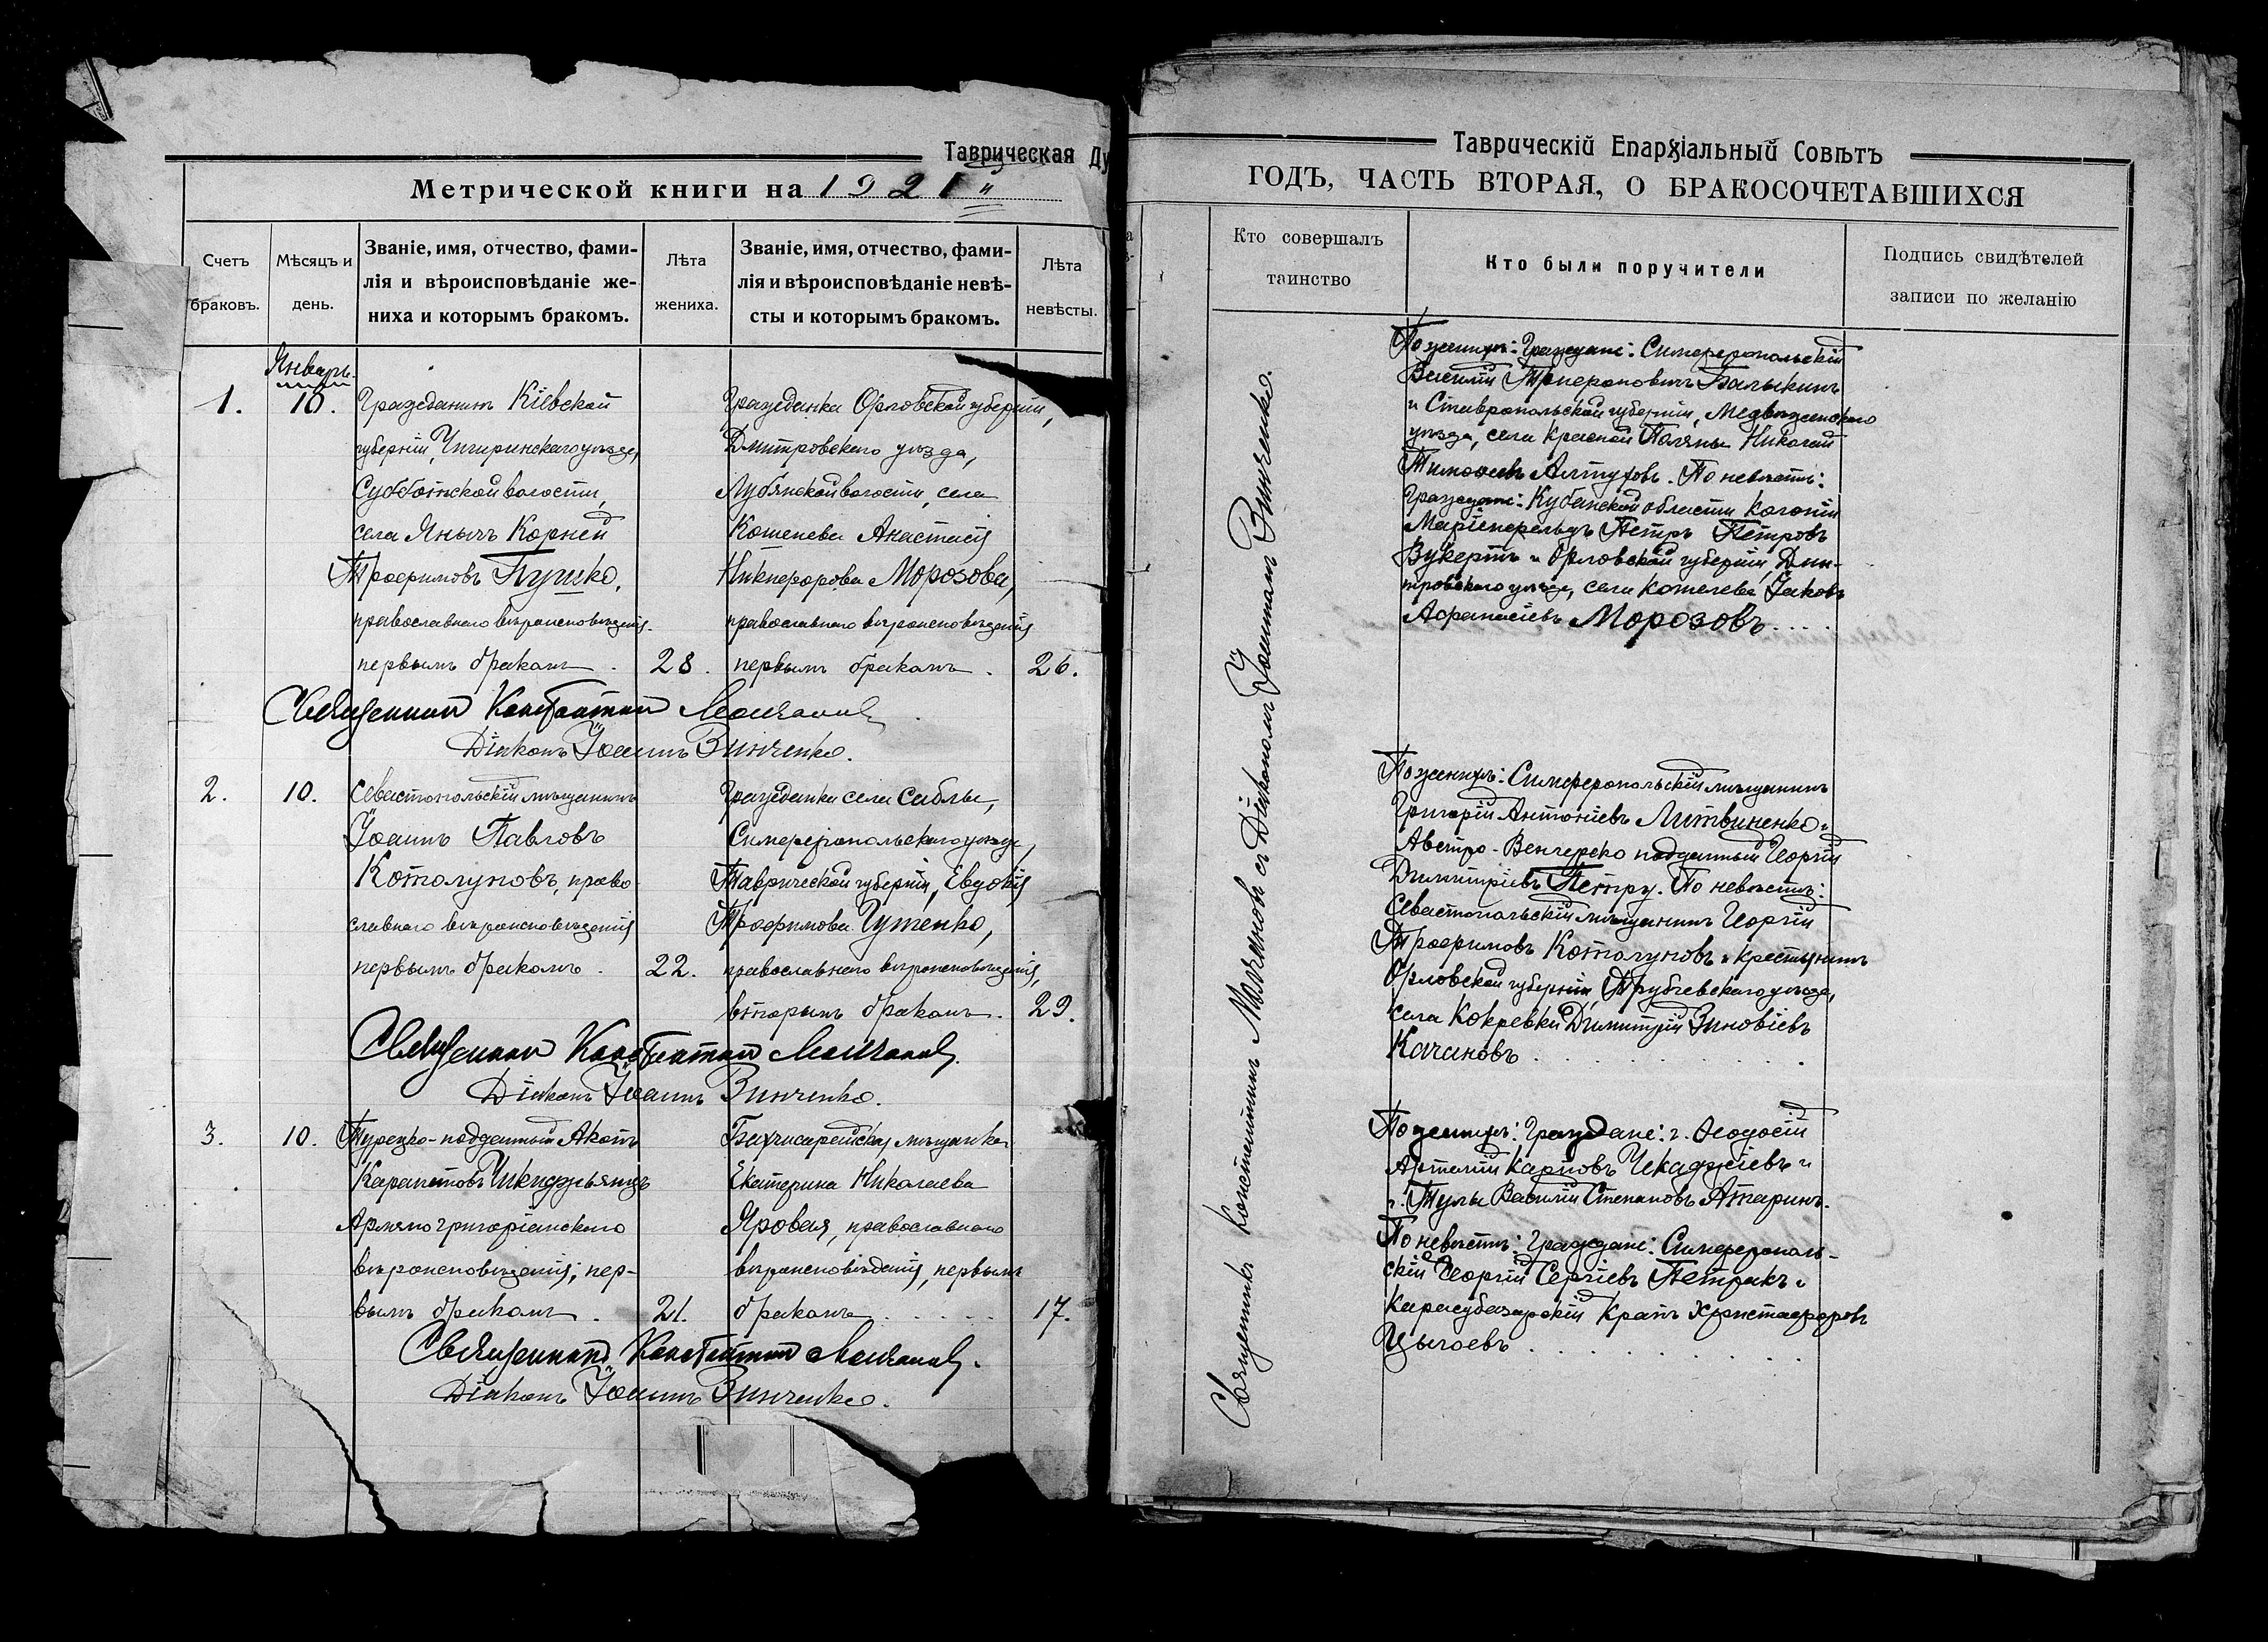 Таврическая Ду
Метрической книги на 1921 й
Счетъ браковъ.
Мѣсяцъ и день.
Званіе, имя, отчество, фами-
лія и вѣроисповѣданіе же-
ниха и которымъ бракомъ.
Лѣта жениха.
Званіе, имя, отчество, фами-
лія и вѣроисповѣданіе невѣ-
сты и которымъ бракомъ.
Лѣта невѣсты.
Январь.
1.
10.
Гражданинъ Кіевской
губерніи, Чигиринскаго уѣзда,
Субботской волости,
села Янычъ Корней
Трофимовъ Пушко,
православнаго вѣроисповѣданія
первымъ бракомъ.
28.
Гражданка Орловской губерніи,
Дмитровскаго уѣзда,
Лубянской волости, села
Кошелева Анастасія
Никифорова Морозова,
православнаго вѣроисповѣданія
первымъ бракомъ.
26.
Священникъ Константинъ Молчановъ
Діаконъ Іоаннъ Винченко.
2.
10.
Севастопольскій мѣщанинъ
Іоаннъ Павловъ
Котолуповъ, право-
славнаго вѣроисповѣданія
первымъ бракомъ.
22.
Гражданка села Саблы,
Симферопольскаго уѣзда,
Таврической губерніи, Евдокія
Трофимова Гутенко,
православнаго вѣроисповѣданія,
вторымъ бракомъ.
29.
Священникъ Константинъ Молчановъ.
Діаконъ Іоаннъ Винченко.
3.
10.
Турецко-подданный Акопъ
Карапетовъ Чикиджьянцъ
Армяно григоріанскаго
вѣроисповѣданія, пер-
вымъ бракомъ.
21.
Бахчисарайская мѣщанка
Екатерина Николаева
Яровая, православнаго
вѣроисповѣданія, первымъ
бракомъ
17.
Священникъ Константинъ Молчановъ.
Діаконъ Іоаннъ Винченко.
Таврическій Епархіальный Совѣтъ
ГОДЪ, ЧАСТЬ ВТОРАЯ, О БРАКОСОЧЕТАВШИХСЯ
Кто совершалъ таинство
Кто были поручители
Подпись свидѣтелей записи по желанію
Священникъ Константинъ Молчановъ съ Діакономъ Іоанномъ Винченко.
По женихѣ: Граждане: Симферопольскій
Василій Балыкинъ
и Ставропольской губерніи, Медвѣженскаго
уѣзда, села Красной Поляны Николай
Тимофеевъ Алтуховъ. По невѣстѣ:
Граждане: Кубанской области колоніи
Маріенфельдъ Петръ Петровъ
Вукертъ и Орловской губерніи, Дми-
тровскаго уѣзда, села Кошелева Іаковъ
Афанасіевъ Морозовъ
По женихѣ: Симферопольскій мѣщанинъ
Григорій Антоніевъ Литвиненко и
Австро-Венгерско подданный Георгій
Димитріевъ Петру. По невѣстѣ:
Севастопольскій мѣщанинъ Георгій
Трофимовъ Котолуповъ и крестьянинъ
Орловской губерніи, Трубчевскаго уѣзда,
села Кокревки Димитрій Зиновіевъ
Качановъ
По женихѣ: Граждане: г. Феодосіи
Карповъ Чекаджіевъ и
г. Тулы Василій Степановъ Атаринъ.
По невѣстѣ: Граждане: Симферополь-
скій Георгій Сергіевъ Петракъ и
Карасубазарскій Христафоровъ